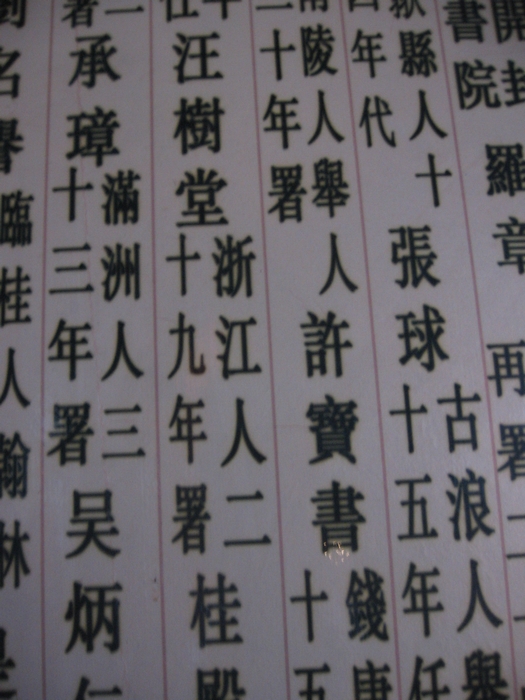 開封
書院
羅章
再署二
縣人十
年代
張球
古浪人舉
十五年任
南陵人舉人
二十年署
許寶書
錢唐
十五
汪樹堂
浙江人二
十九年署
桂殿
承璋
滿洲人三
十三年署
吴炳
名譽
臨桂人翰林